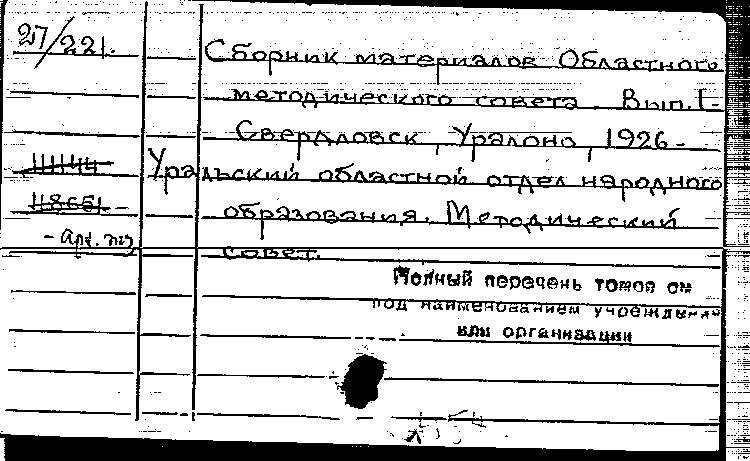 27/221.
Сборник материалов Областного
методического совета. Вып. I-
Свердловск, Уралоно, 1926-
Уральский областной отдел народного
образования. Методический
совет.
Полный перечень томов см
под наименованием учреждения
или организации